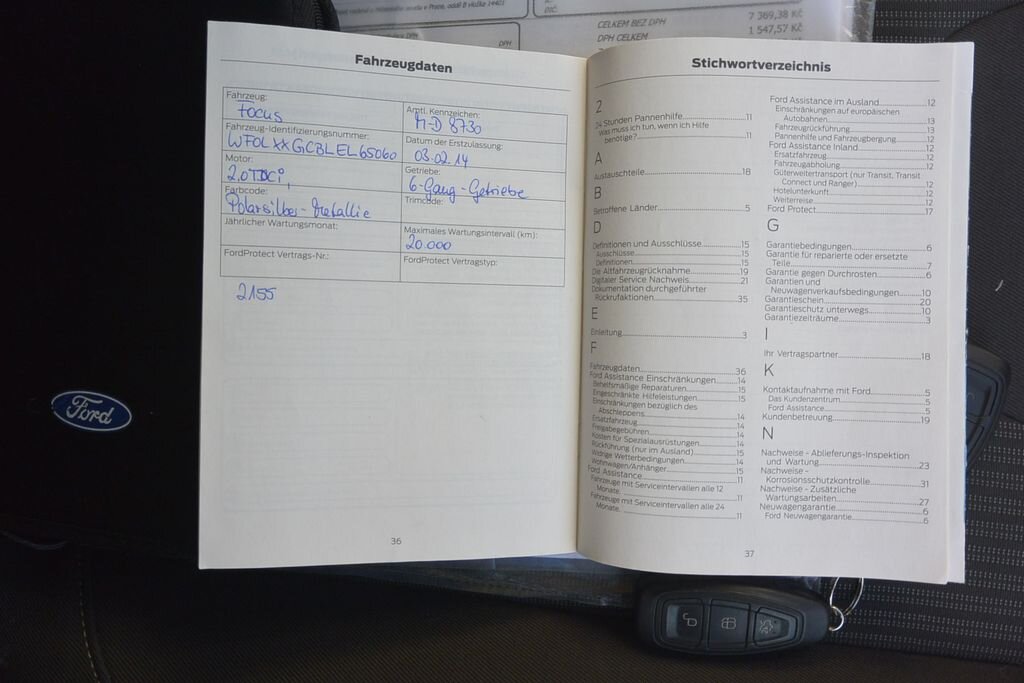 7 369,38 Kč
CELKEM BEZ DPH
1 547,57 Kč
DPH CELKEM
DPH
Fahrzeugdaten
Fahrzeug:
Focus
Amtl. Kennzeichen:
M-D 8730
Fahrzeug-Identifizierungsnummer:
WF0LXXGCBLEL65060
Datum der Erstzulassung:
03.02.14
Motor:
2.0TDCi,
Getriebe:
6-Gang-Getriebe
Farbcode:
Polarsilber-Metallic
Trimcode:
Jährlicher Wartungsmonat:
Maximales Wartungsintervall (km):
20.000
FordProtect Vertrags-Nr.:
FordProtect Vertragstyp:
2155
36
Ford
Stichwortverzeichnis
2
24 Stunden Pannenhilfe 11
Was muss ich tun, wenn ich Hilfe
benötige? 11
A
Austauschteile 18
B
Betroffene Länder 5
D
Definitionen und Ausschlüsse 15
Ausschlüsse 15
Definitionen 15
Die Altfahrzeugrücknahme 19
Digitaler Service Nachweis 21
Dokumentation durchgeführter
Rückrufaktionen 35
E
Einleitung 3
F
Fahrzeugdaten 36
Ford Assistance Einschränkungen 14
Behelfsmäßige Reparaturen 15
Eingeschränkte Hilfeleistungen 15
Einschränkungen bezüglich des
Abschleppens 14
Ersatzfahrzeug 14
Freigabegebühren 14
Kosten für Spezialausrüstungen 14
Rückführung (nur im Ausland) 15
Widrige Wetterbedingungen 14
Wohnwagen/Anhänger 15
Ford Assistance 11
Fahrzeuge mit Serviceintervallen alle 12
Monate 11
Fahrzeuge mit Serviceintervallen alle 24
Monate 11
Ford Assistance im Ausland 12
Einschränkungen auf europäischen
Autobahnen 13
Fahrzeugrückführung 13
Pannenhilfe und Fahrzeugbergung 12
Ford Assistance Inland 12
Ersatzfahrzeug 12
Fahrzeugabholung 12
Güterweitertransport (nur Transit, Transit
Connect und Ranger) 12
Hotelunterkunft 12
Weiterreise 12
Ford Protect 17
G
Garantiebedingungen 6
Garantie für reparierte oder ersetzte
Teile 7
Garantie gegen Durchrosten 6
Garantien und
Neuwagenverkaufsbedingungen 10
Garantieschein 20
Garantieschutz unterwegs 10
Garantiezeiträume 3
I
Ihr Vertragspartner 18
K
Kontaktaufnahme mit Ford 5
Das Kundenzentrum 5
Ford Assistance 5
Kundenbetreuung 19
N
Nachweise - Ablieferungs-Inspektion
und Wartung 23
Nachweise -
Korrosionsschutzkontrolle 31
Nachweise - Zusätzliche
Wartungsarbeiten 27
Neuwagengarantie 6
Ford Neuwagengarantie 6
37